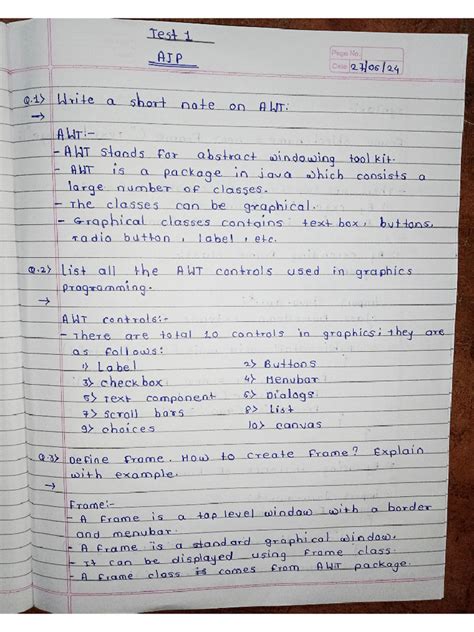 Test 1
AJP
Page No.
Date 27/06/24
Q.1> Write a short note on AWT.
→
AWT:-
- AWT stands for abstract windowing tool kit.
- AWT is a package in java which consists a
large number of classes.
- The classes can be graphical.
- Graphical classes contains text box, buttons,
radio button, label, etc.
Q.2> List all the AWT controls used in graphics
programming.
→
AWT controls:-
- There are total 10 controls in graphics; they are
as follows:
1> Label 2> Buttons
3> check box 4> Menubar
5> Text component 6> Dialogs
7> scroll bars 8> List
9> choices 10> canvas
Q.3> Define frame. How to create frame? Explain
with example.
→
Frame:-
- A frame is a top level window with a border
and menubar.
- A frame is a standard graphical window.
- It can be displayed using Frame class.
- A frame class is comes from AWT package.